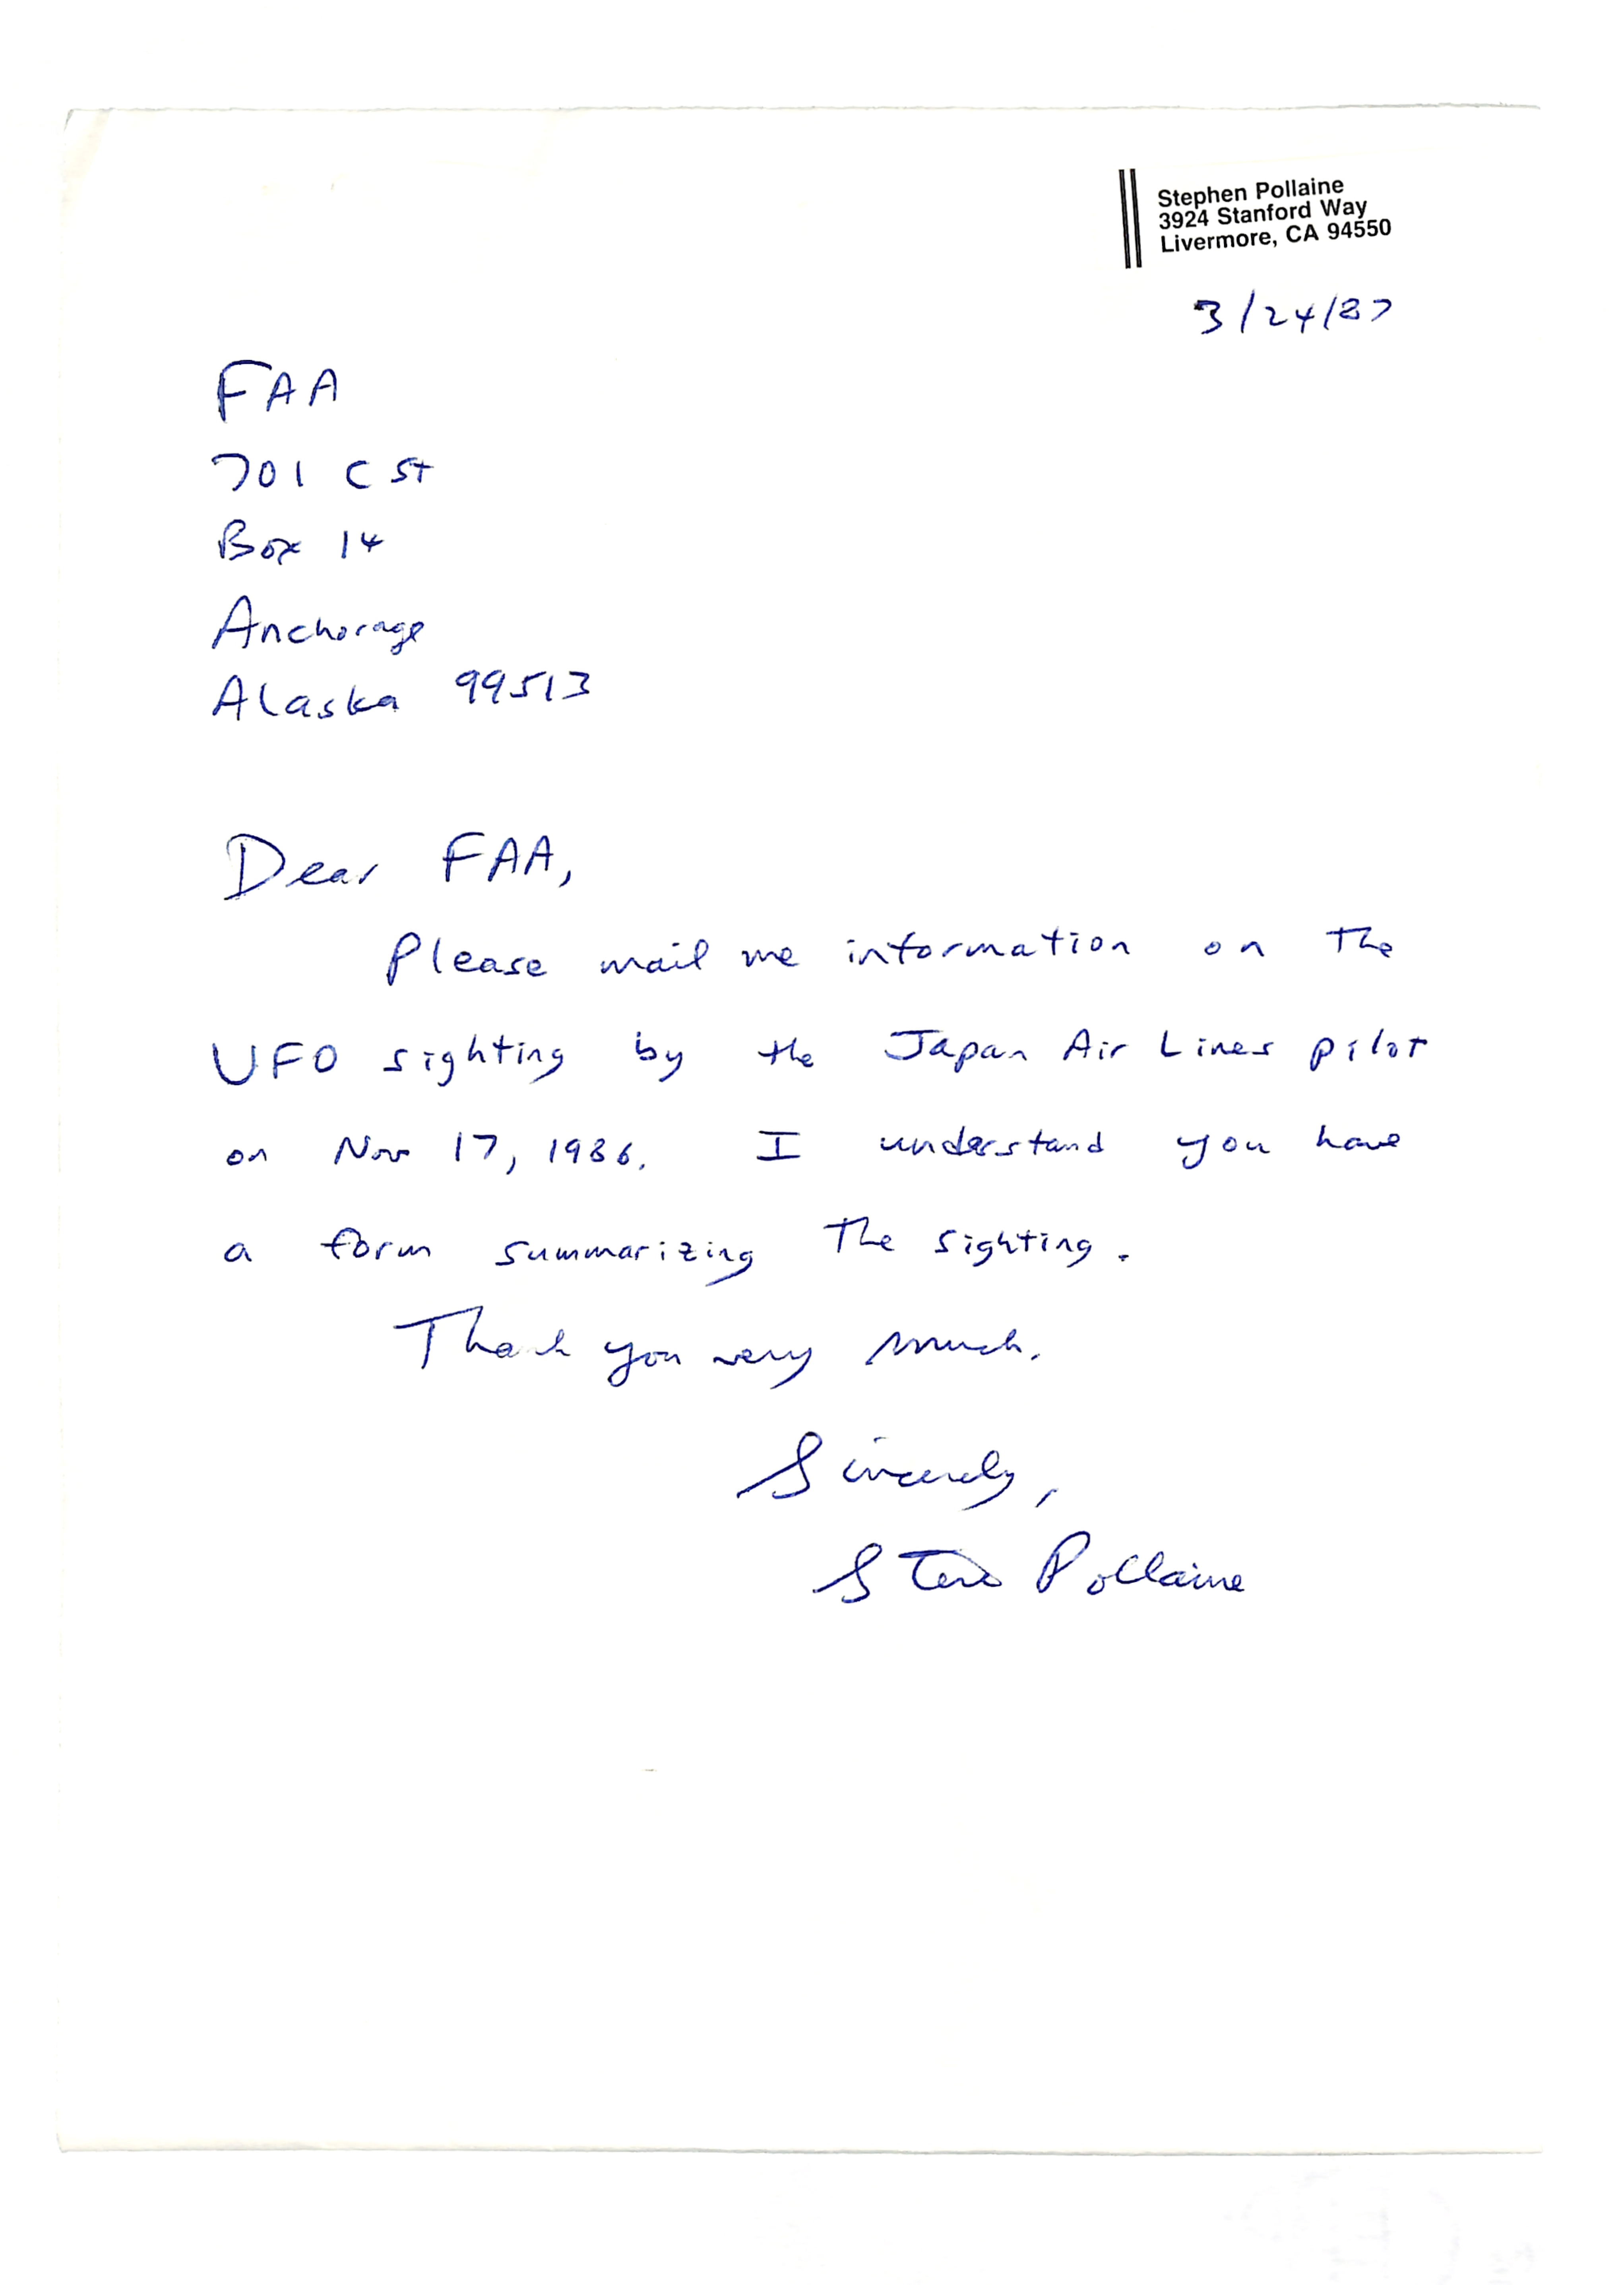 Stephen Pollaine
3924 Stanford Way
Livermore, CA 94550
3/24/87
FAA
701 C St
Box 14
Anchorage
Alaska 99513
Dear FAA,
Please mail me information on the
UFO sighting by the Japan Air Lines pilot
on Nov 17, 1986. I understand you have
a form summarizing the sighting.
Thank you very much.
Sincerely,
Steve Pollaine